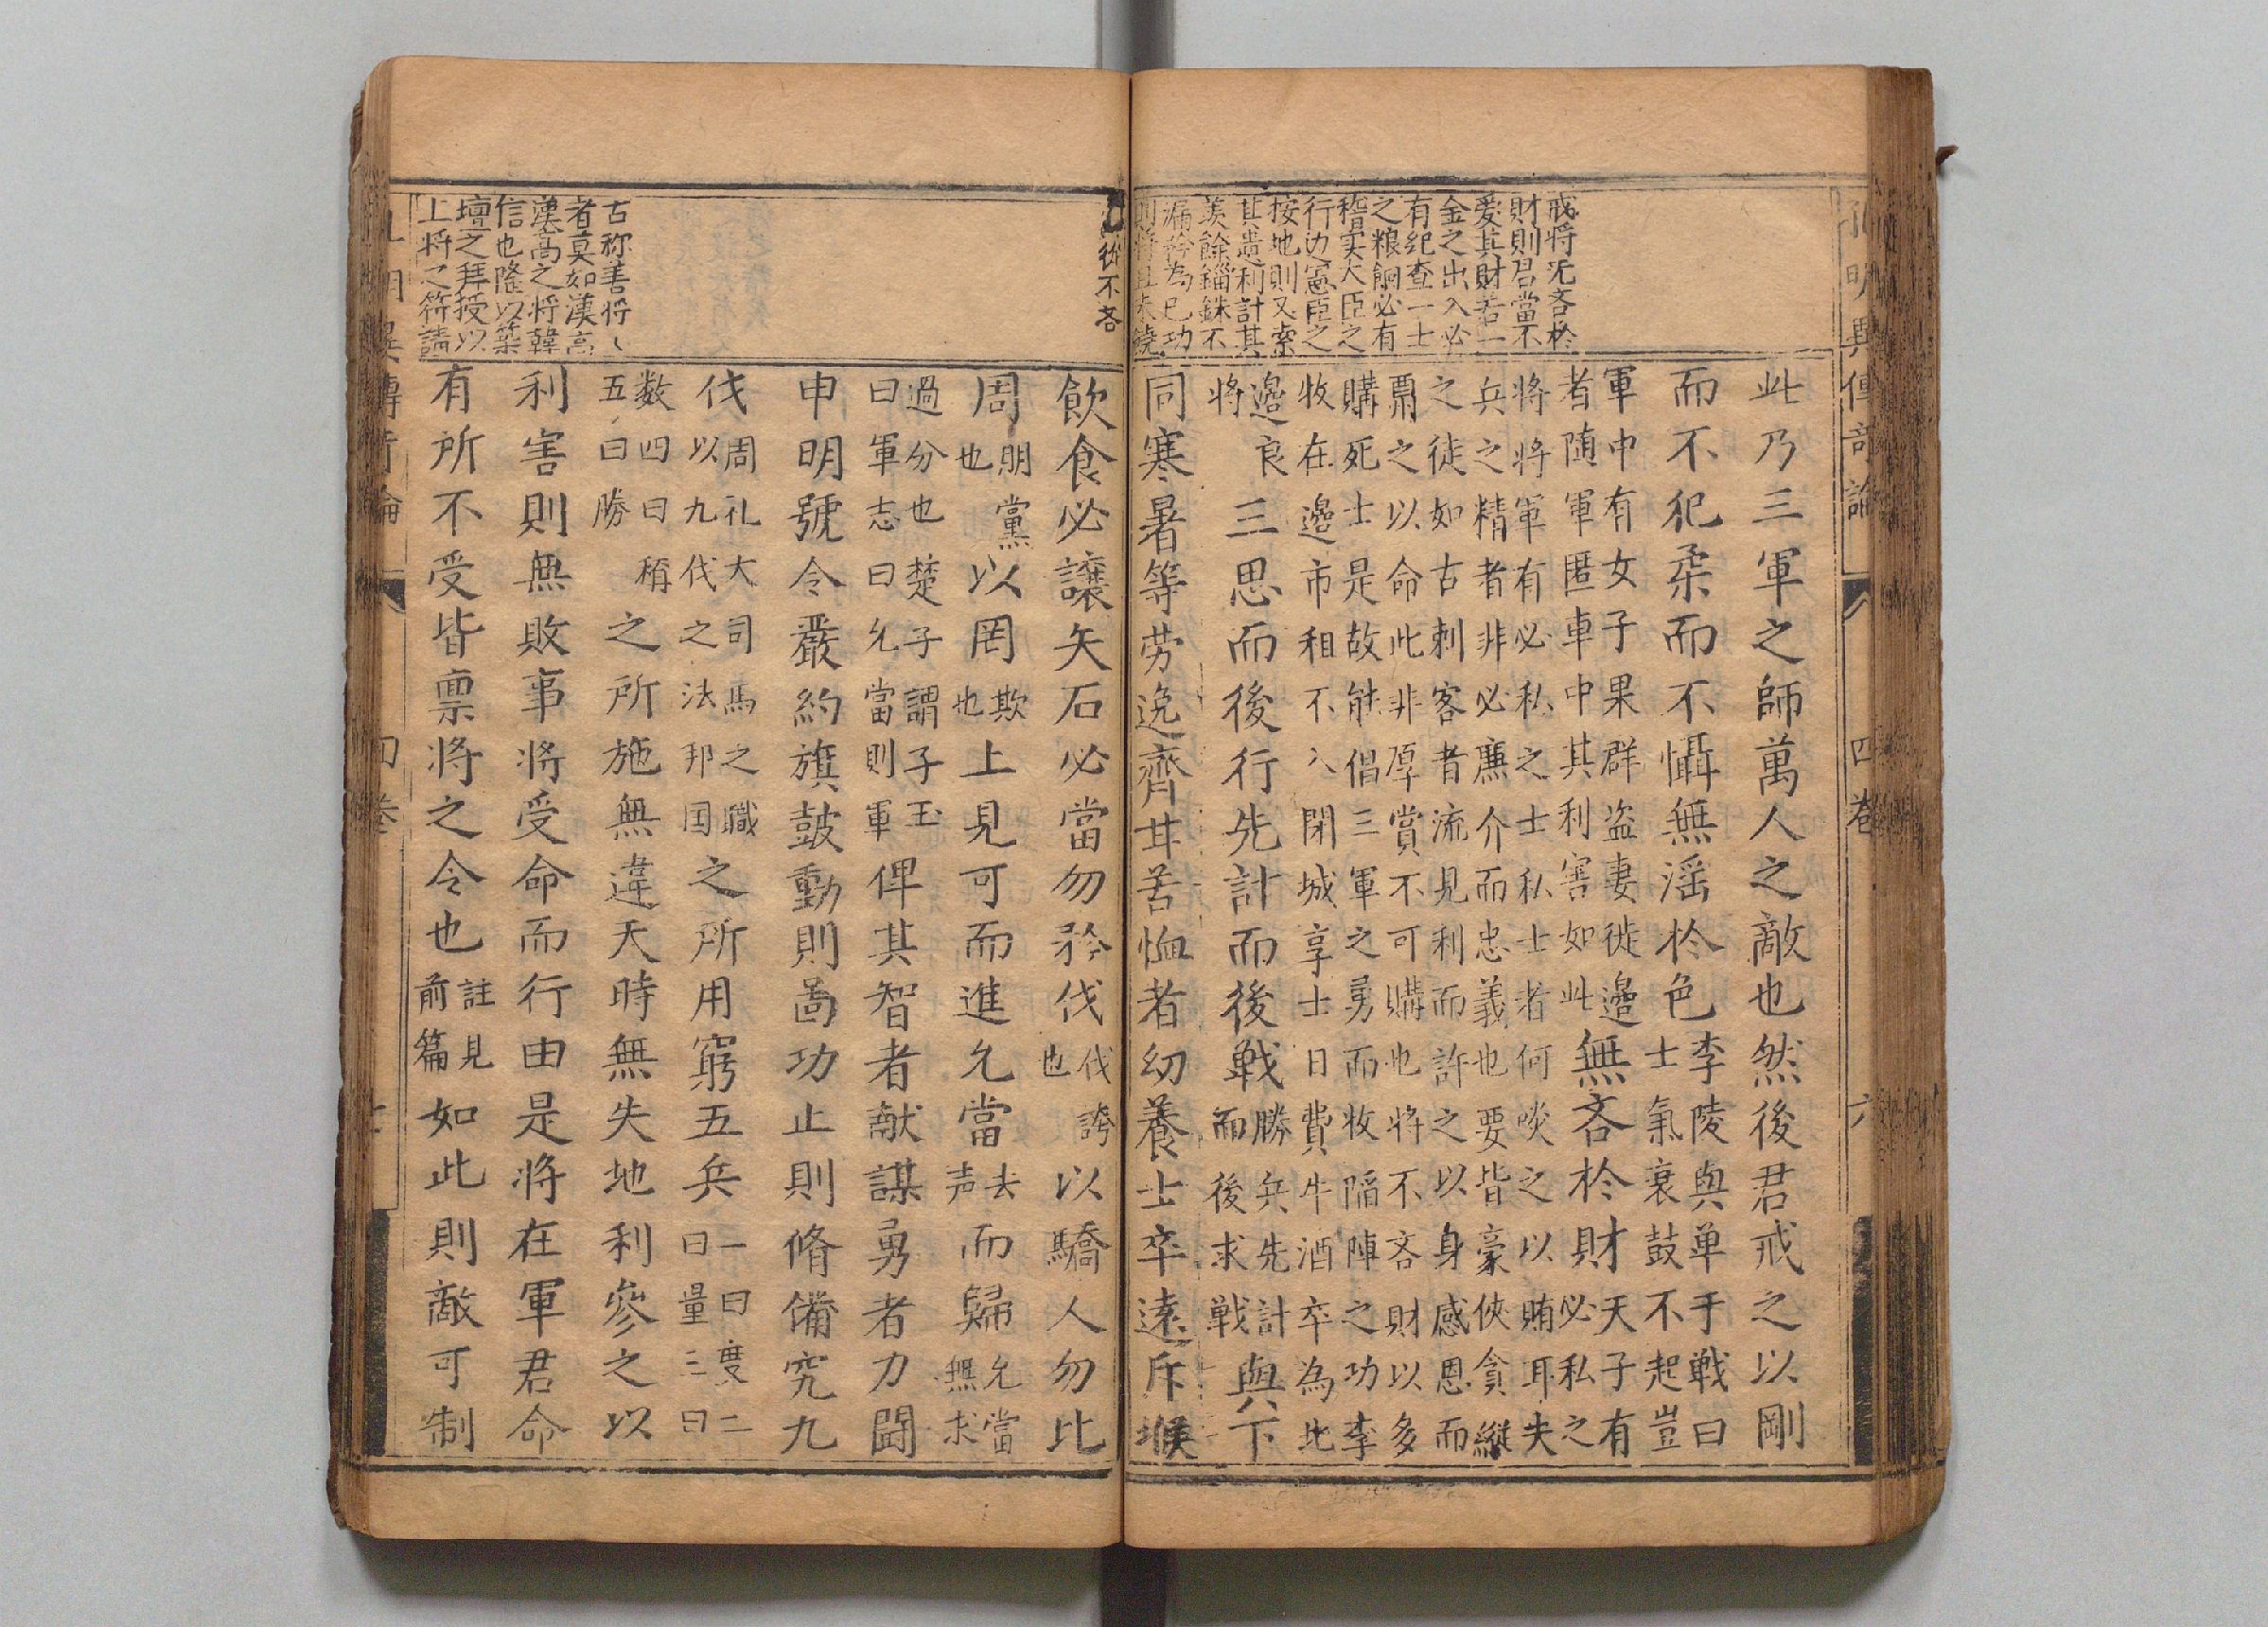 孔明異傳竒論 四卷 六
戒将旡吝於
財則君當不
爱其財若一
金之出入必
有纪查一士
之粮餉必有
稽实大臣之
行边憲臣之
按地則又索
其遗利計其
羡餘錙銖不
漏矜為己功
則将且未饒
此乃三軍之師萬人之敵也然後君戒之以剛
而不犯柔而不懾無滛於色李陵與单于戦曰士氣衰鼓不起豈
軍中有女子果群盗妻徙邉者随軍匿車中其利害如此無吝於財天子有必私之
将将軍有必私之士私士者何啖之以賄耳夫
兵之精者非必廉介而忠義也要皆豪侠貪縦
之徒如古刺客者流見利而許之以身感恩而
之以命此非厚賞不可購也将不吝財以多
購死士是故能倡三軍之勇而牧陷陣之功李
牧在邉市租不入閉城享士日費牛酒卒為北
邉良将三思而後行先計而後戦勝兵先計而後求戦與下
同寒暑等劳逸齊甘苦恤者幼養士卒遠斥堠
從不吝
古称善将〻
者莫如漢高
漢高之将韓
信也隆以築
壇之拜授以
上将之符請
飲食必譲矢石必當勿矜伐伐誇也以驕人勿比
周朋黨也以罔欺也上見可而進允當去声而歸允當無求
過分也楚子謂子玉曰軍志曰允當則軍俾其智者献謀勇者力閗
申明號令嚴約旗鼓動則啚功止則脩備究九
伐周礼大司馬之職以九伐之法邦国之所用窮五兵一曰度二曰量三曰
数四曰稱五曰勝之所施無違天時無失地利參之以
利害則無敗事将受命而行由是将在軍君命
有所不受皆禀将之令也註見前篇如此則敵可制